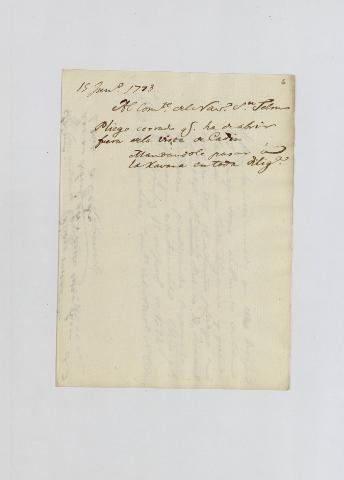 6
15 Jun.º 1793.
Al Com.te de la Nav.º S.n Telmo
Pliego cerrado q.e ha de abrir
fuera de la vista de Cadiz
Mandandole pasar á
la Havana en toda Dilig.ª